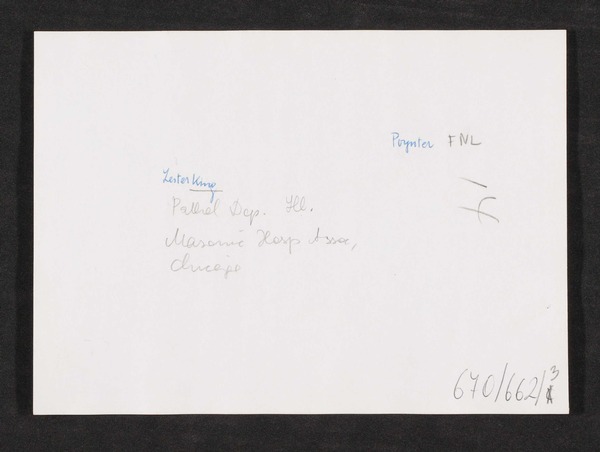 Poynter FNL
Lester King
Pathol Dep. Ill.
Masonic Hosp Assoc,
Chicago
670/662/3